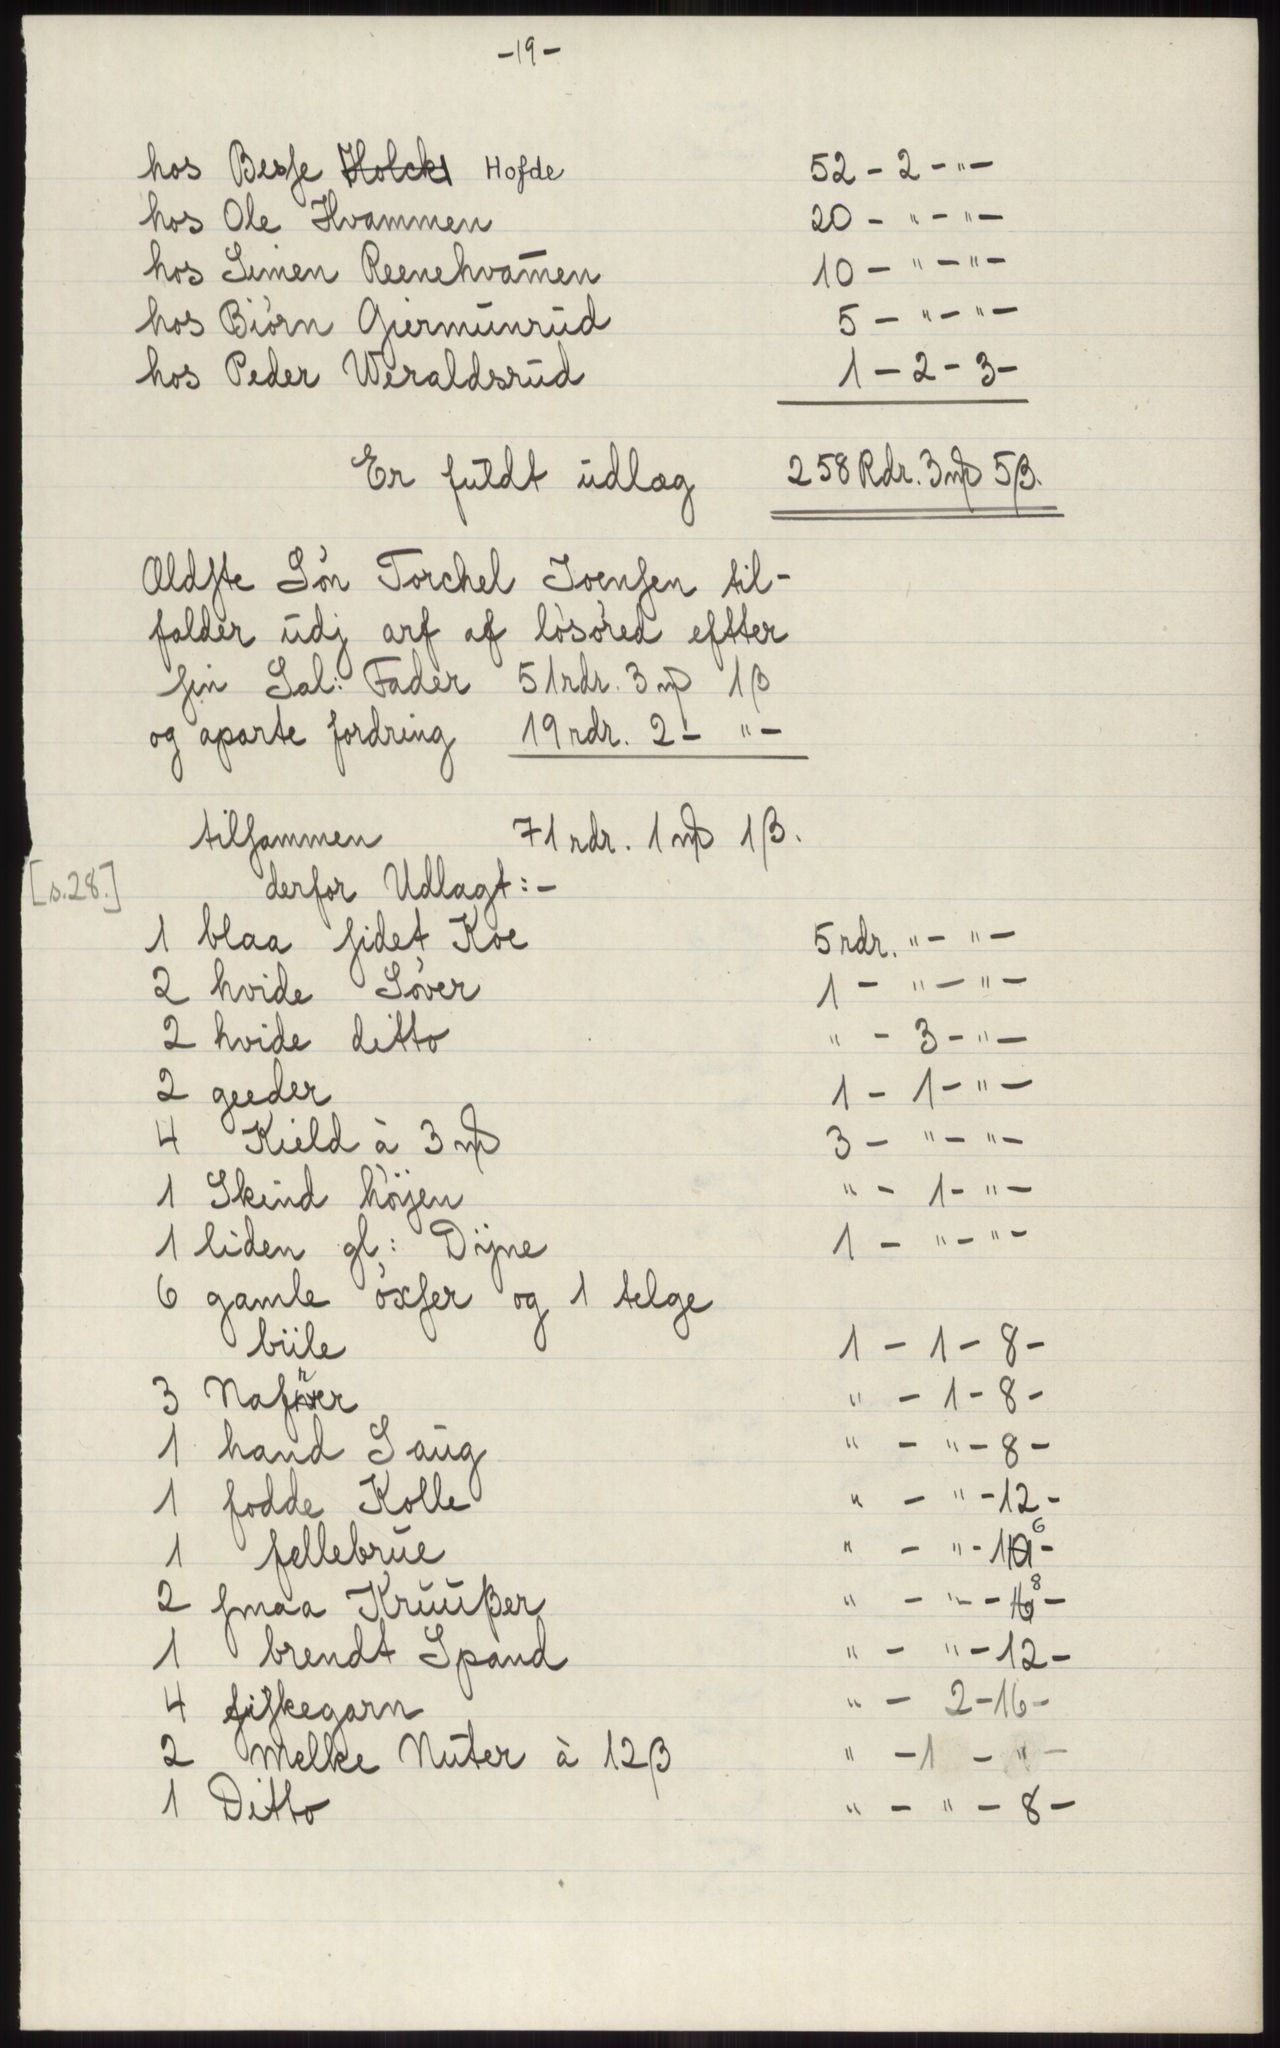 -19-
hos Besse Holck Hofde 52 - 2 - " -
hos Ole Hvammen 20 - " - " -
hos Simen Reenehvam̄en 10 - " - " -
hos Biörn Giermünrüd 5 - " - " -
hos Peder Weraldsrüd 1 - 2 - 3 -
Er füldt üdlæg 258 Rdr. 3 mþ 5 β.
Ældste Sön Torchel Joensen til-
falder üdj arf af lösöred eftter
sin Sal: Fader 51 rdr. 3 mþ 1 β
og aparte fordring 19 rdr. 2 - " -
tilsammen 71 rdr. 1 mþ 1 β.
[s.28.] derfor Udlagt: -
1 blaa sidet Koe 5 rdr. " - " -
2 hvide Söver 1 - " - " -
2 hvide ditto " - 3 - " -
2 geeder 1 - 1 - " -
4 Kield à 3 mþ 3 - " - " -
1 Skind höyen " - 1 - " -
1 liden gl: Dÿne 1 - " - " -
6 gamle öxser og 1 telge
biile 1 - 1 - 8 -
3 Nafver " - 1 - 8 -
1 hand Saüg " - " - 8 -
1 fodde Kolle " - " - 12 -
1 fellebrüe " - " - 16 -
2 smaa Krüüβer " - " - 8 -
1 brendt Spand " - " - 12 -
4 fiskegarn " - 2 - 16 -
2 Melke Nüter à 12 β " - 1 - " -
1 Ditto " - " - 8 -